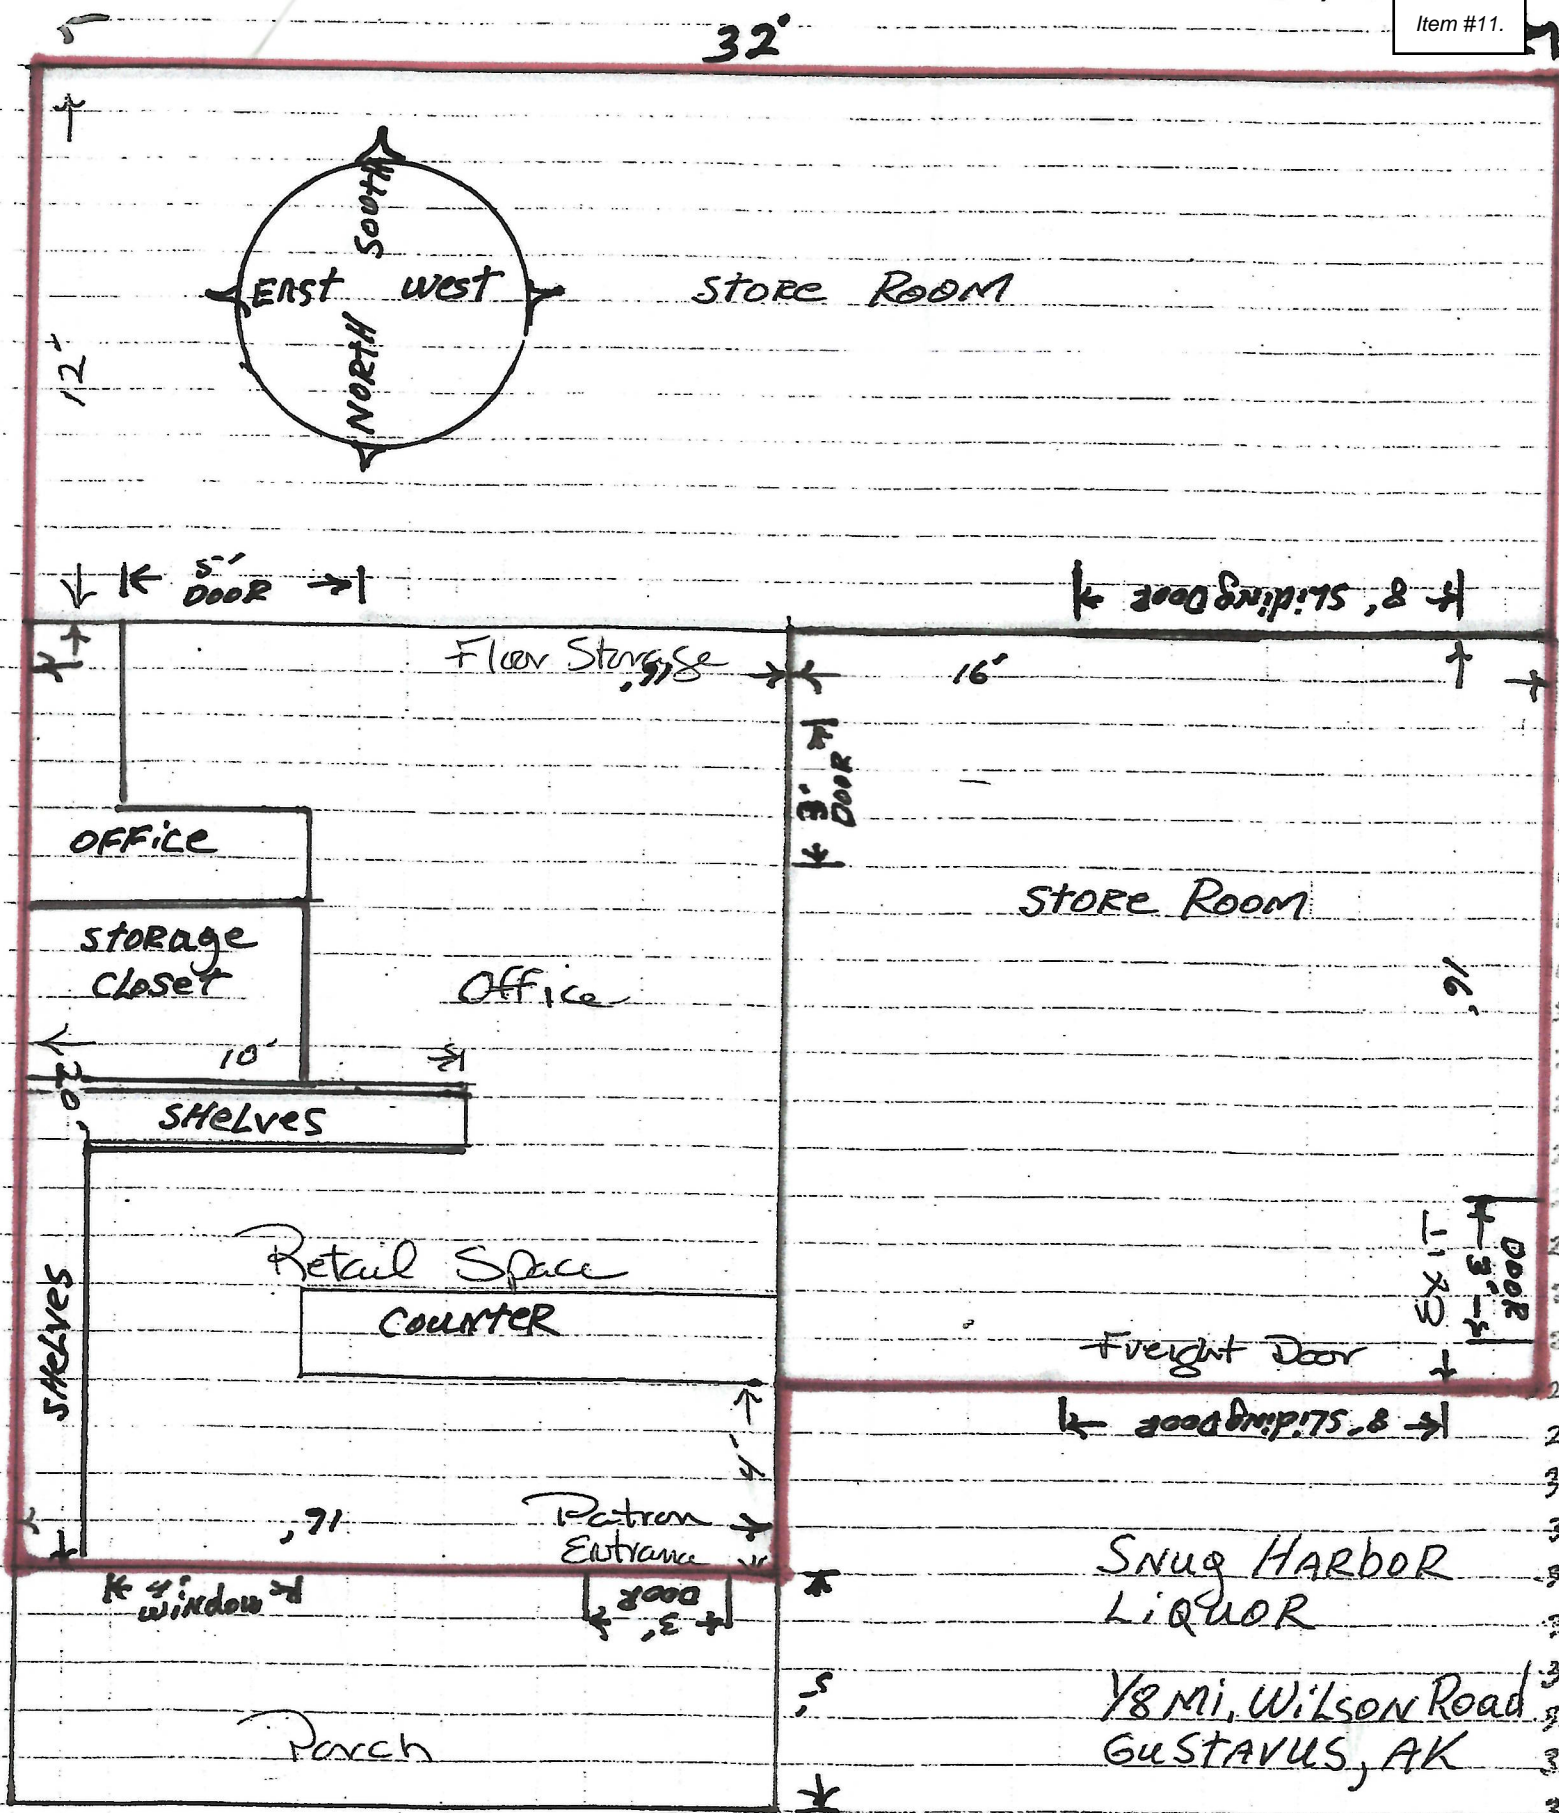 Item #11.
32'
SOUTH
EAST
West
NORTH
STORE ROOM
12'
5'
DOOR
8' SLiding DOOR
Floor Storage
16'
16'
3'
DOOR
OFFice
STORE ROOM
STORage
CLoset
Office
16'
10'
20'
SHeLves
Retail Space
COUNTER
SHELVES
Exit
3'
DOOR
Freight Door
8' SLiding DOOR
4'
16'
Patron
Entrance
4'
window
DOOR
3'
SNug HARboR
LiQuoR
5'
1/8 Mi. WiLSON Road
GuSTAVUS, AK
Porch